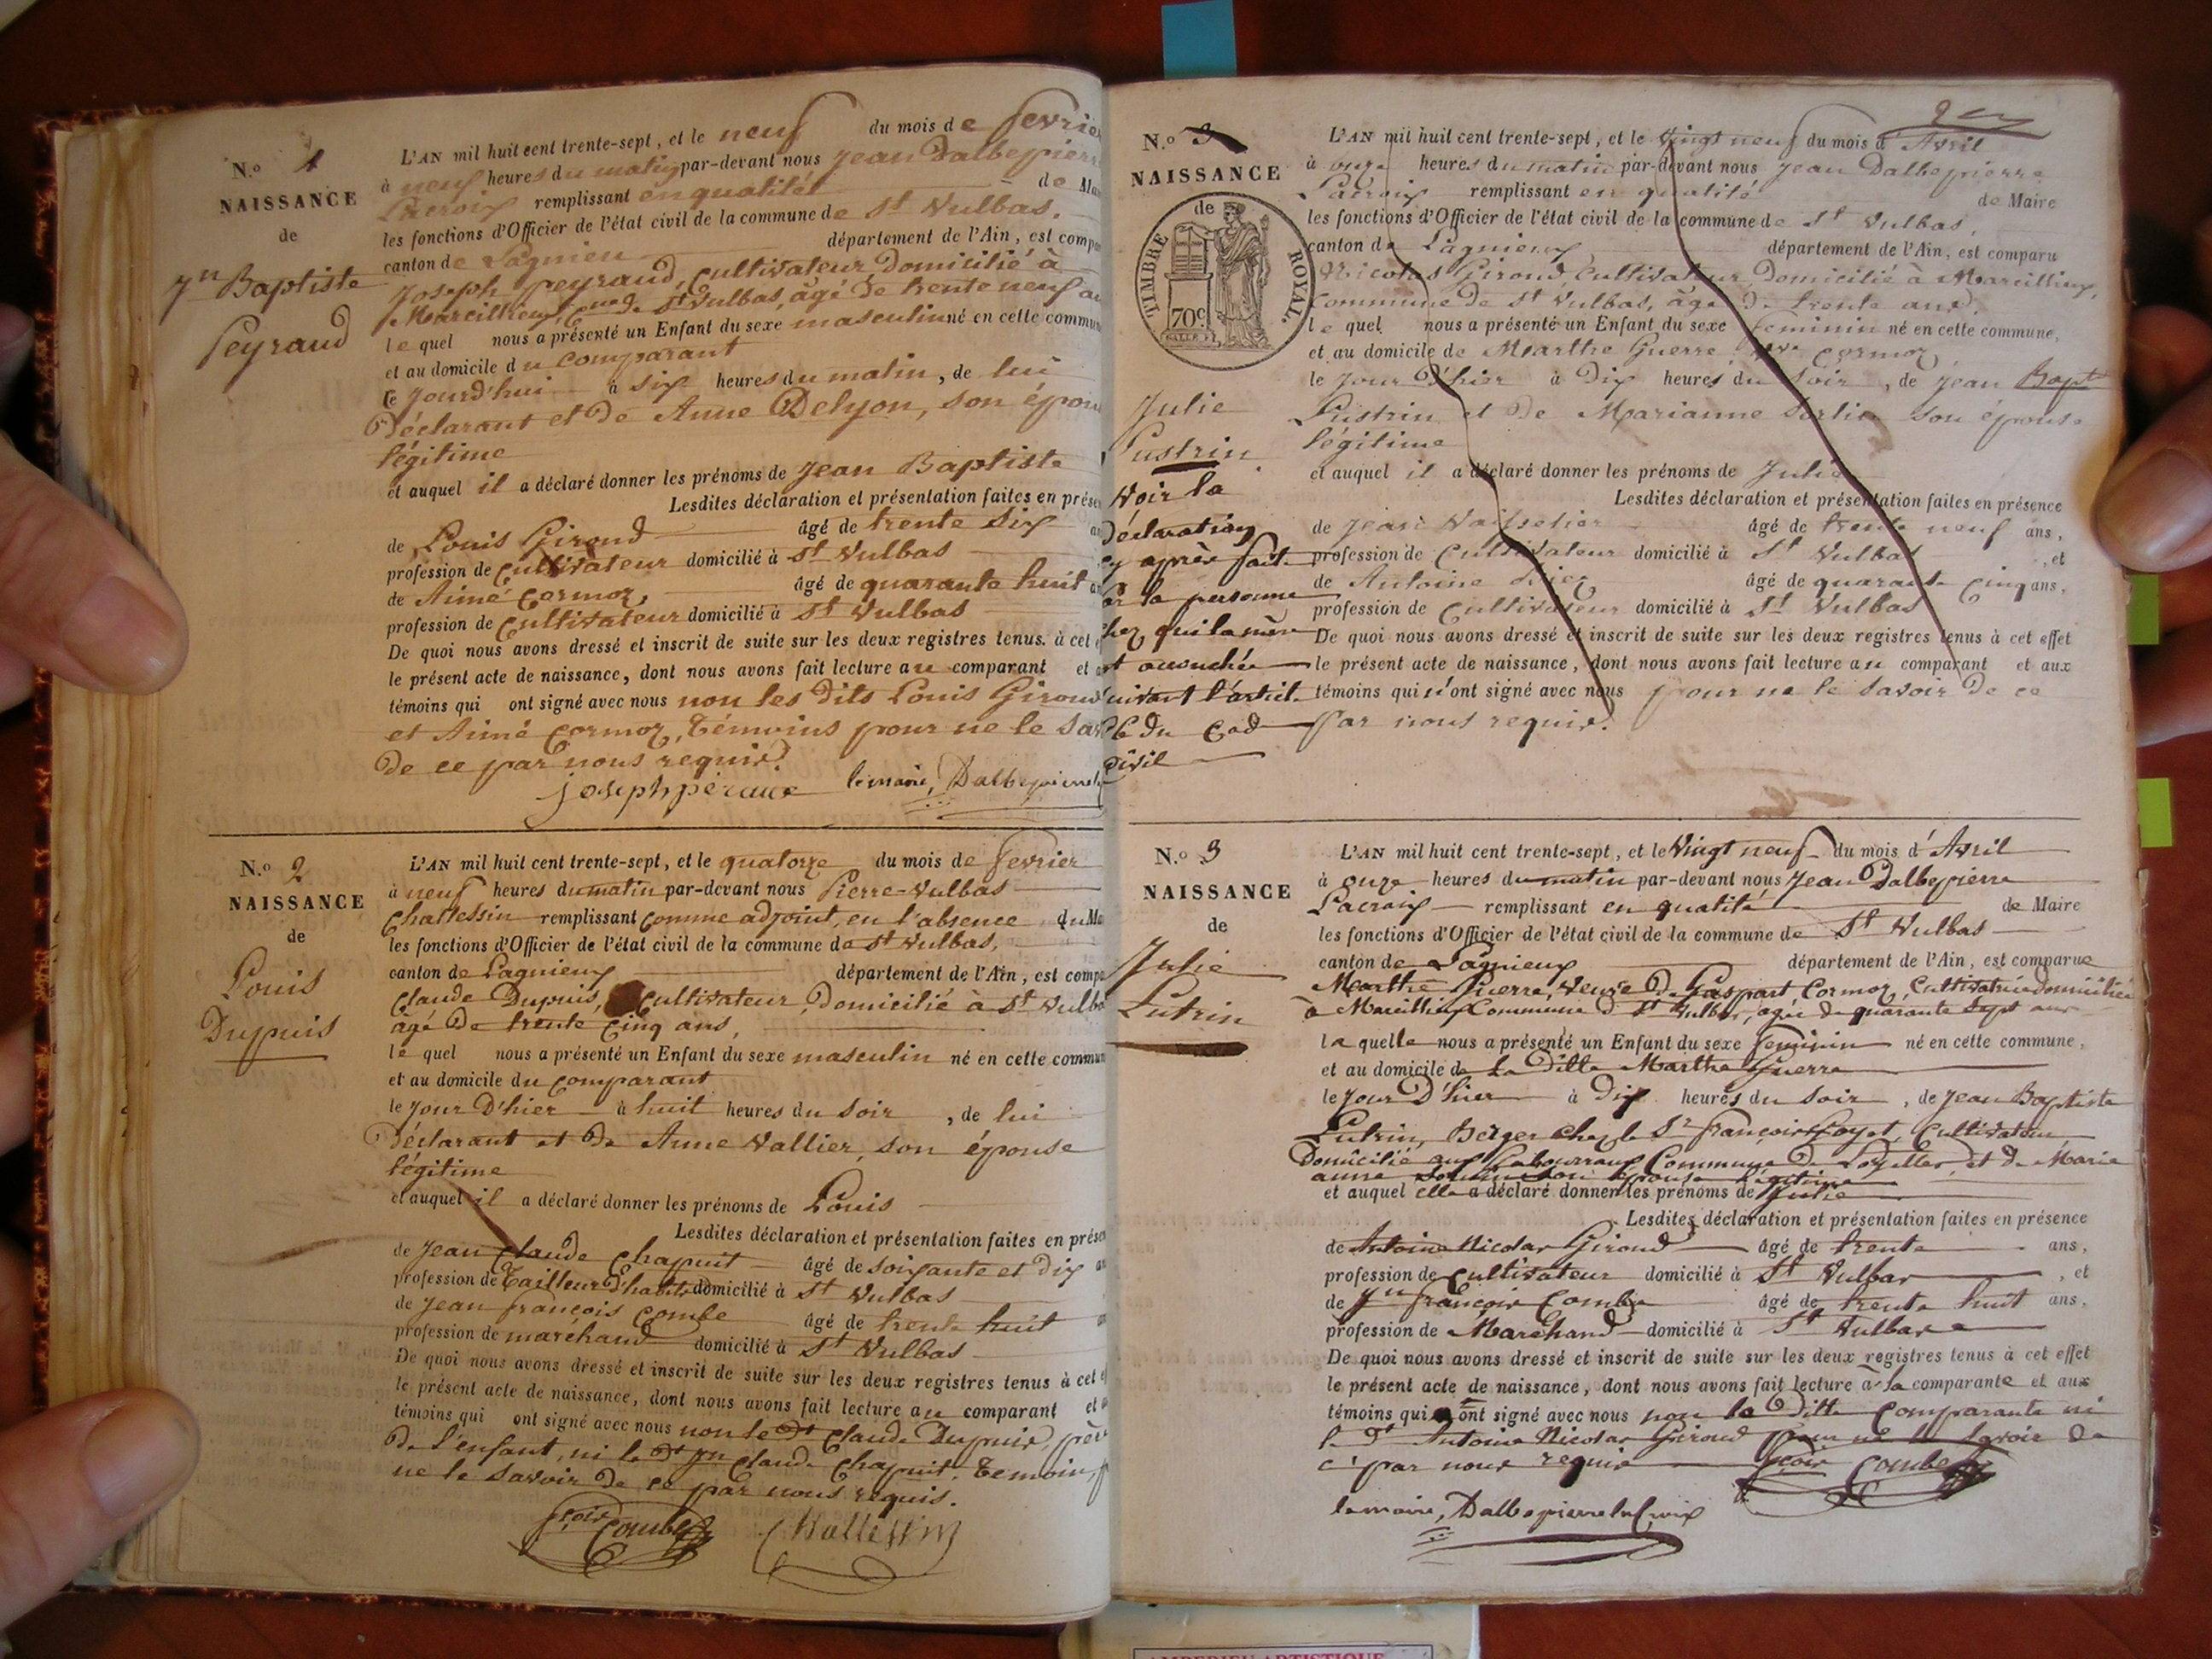 N.º 1
NAISSANCE
de
Jn Baptiste
Peyraud
L'AN mil huit cent trente-sept, et le neuf du mois de fevrier
à neuf heures du matin par-devant nous Jean Dalbepierr
Lacroix remplissant en qualité de Ma
les fonctions d'Officier de l'état civil de la commune de St Vulbas.
canton de Lagnieu département de l'Ain, est compa
Joseph Peyraud, Cultivateur, domicilié à
Marcillieux, Cne de St Vulbas, âgé de trente neuf a
le quel nous a présenté un Enfant du sexe masculin né en cette commun
et au domicile du comparant
ce jourd'hui à six heures du matin, de lui
déclarant et de Anne Delyon, son épou
légitime
et auquel il a déclaré donner les prénoms de Jean Baptiste
Lesdites déclaration et présentation faites en prése
de Louis Giroud âgé de trente six an
profession de Cultivateur domicilié à St Vulbas
de Aimé Cormoz, âgé de quarante huit an
profession de Cultivateur domicilié à St Vulbas
De quoi nous avons dressé et inscrit de suite sur les deux registres tenus à cet e
le présent acte de naissance, dont nous avons fait lecture au comparant et a
témoins qui ont signé avec nous non les dits Louis Giroud
et Aimé Cormoz, témoins pour ne le sav
de ce par nous requis.
joseph peraud le maire, Dalbepierre
N.º 2
NAISSANCE
de
Louis
Dupuis
L'AN mil huit cent trente-sept, et le quatorze du mois de fevrier
à neuf heures du matin par-devant nous Pierre-Vulbas
Chattessin remplissant comme adjoint, en l'absence du Ma
les fonctions d'Officier de l'état civil de la commune de St Vulbas,
canton de Lagnieux département de l'Ain, est compa
Claude Dupuis, Cultivateur, domicilié à St Vulba
âgé de trente cinq ans,
le quel nous a présenté un Enfant du sexe masculin né en cette commun
et au domicile du comparant
le jour d'hier à huit heures du soir, de lui
déclarant et de Anne Vallier, son épouse
légitime
et auquel il a déclaré donner les prénoms de Louis
Lesdites déclaration et présentation faites en prése
de Jean Claude Chapuit âgé de soixante et dix an
profession de Tailleur d'habits domicilié à St Vulbas
de Jean françois Combe âgé de trente huit an
profession de maréchand domicilié à St Vulbas
De quoi nous avons dressé et inscrit de suite sur les deux registres tenus à cet ef
le présent acte de naissance, dont nous avons fait lecture au comparant et a
témoins qui ont signé avec nous non le dt Claude Dupuis, pèr
de l'enfant, ni le dt Jn Claude Chapuit, témoin, p
ne le savoir de ce par nous requis.
fçois Combe Chattessin
N.º 3
NAISSANCE
de
TIMBRE ROYAL.
70c
Julie
Lustrin
Voir la
déclaration
cy après faite
par la personne
chez qui la mère
est accouchée
suivant l'article
56 du Code
Civil
L'AN mil huit cent trente-sept, et le vingt neuf du mois d'Avril
à onze heures du matin par-devant nous Jean Dalbepierre
Lacroix remplissant en qualité de Maire
les fonctions d'Officier de l'état civil de la commune de St Vulbas,
canton de Lagnieux département de l'Ain, est comparu
Nicolas Giroud, Cultivateur, domicilié à Marcillieux,
Commune de St Vulbas, âgé de trente ans,
le quel nous a présenté un Enfant du sexe féminin né en cette commune,
et au domicile de Marthe Guerre Vve Cormoz
le jour d'hier à dix heures du soir, de Jean Bapt
Lustrin et de Marianne Sorlin son épouse
légitime
et auquel il a déclaré donner les prénoms de Julie
Lesdites déclaration et présentation faites en présence
de Jean Vaisselier âgé de trente neuf ans,
profession de Cultivateur domicilié à St Vulbas, et
de Antoine âgé de quarante cinq ans,
profession de Cultivateur domicilié à St Vulbas
De quoi nous avons dressé et inscrit de suite sur les deux registres tenus à cet effet
le présent acte de naissance, dont nous avons fait lecture au comparant et aux
témoins qui n'ont signé avec nous pour ne le savoir de ce
par nous requis.
N.º 3
NAISSANCE
de
Julie
Lutrin
L'AN mil huit cent trente-sept, et le Vingt neuf du mois d'Avril
à onze heures du matin par-devant nous Jean Dalbepierre
Lacroix remplissant en qualité de Maire
les fonctions d'Officier de l'état civil de la commune de St Vulbas
canton de Lagnieux département de l'Ain, est comparue
Marthe Guerre, Veuve de Gaspart, Cormoz, Cultivatrice domiciliée
à Marcillieux Commune de St Vulbas, agée de quarante sept ans
la quelle nous a présenté un Enfant du sexe féminin né en cette commune,
et au domicile de la ditte Marthe Guerre
le jour d'hier à dix heures du soir, de Jean Baptiste
Lutrin, Berger chez le Sr françois Loyet, Cultivateur
domicilié aux Commune de Loyettes, et de Marie
anne son épouse légitime
et auquel elle a déclaré donner les prénoms de Julie
Lesdites déclaration et présentation faites en présence
de Antoine Nicolas Giroud âgé de trente ans,
profession de Cultivateur domicilié à St Vulbas, et
de Jn françois Combe âgé de trente huit ans,
profession de Maréchand domicilié à St Vulbas
De quoi nous avons dressé et inscrit de suite sur les deux registres tenus à cet effet
le présent acte de naissance, dont nous avons fait lecture à la comparante et aux
témoins qui ont signé avec nous non la ditte Comparante ni
le dt Antoine Nicolas Giroud pour ne le savoir de
ce par nous requis fçois Combe
le maire, Dalbepierre lacroix